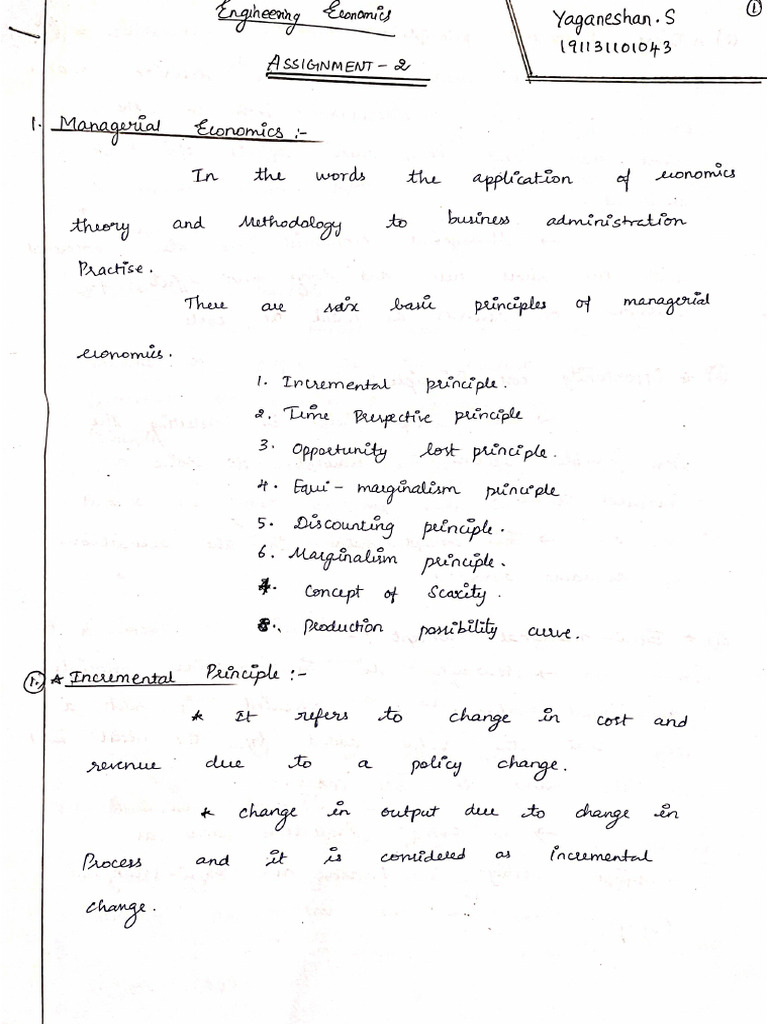 Engineering Economics
Yaganeshan.S
①
191131101043
ASSIGNMENT - 2
1. Managerial Economics :-
In the words the application of economics
theory and Methodology to business administration
Practise.
There are six basic principles of managerial
economics.
1. Incremental principle.
2. Time Prespective principle
3. Opportunity lost principle.
4. Equi - marginalism principle
5. Discounting principle.
6. Marginalism principle.
7. Concept of Scaxity.
8. Production possibility curve.
①. * Incremental Principle :-
* It refers to change in cost and
revenue due to a policy change.
* change in output due to change in
Process and it is considered as incremental
change.